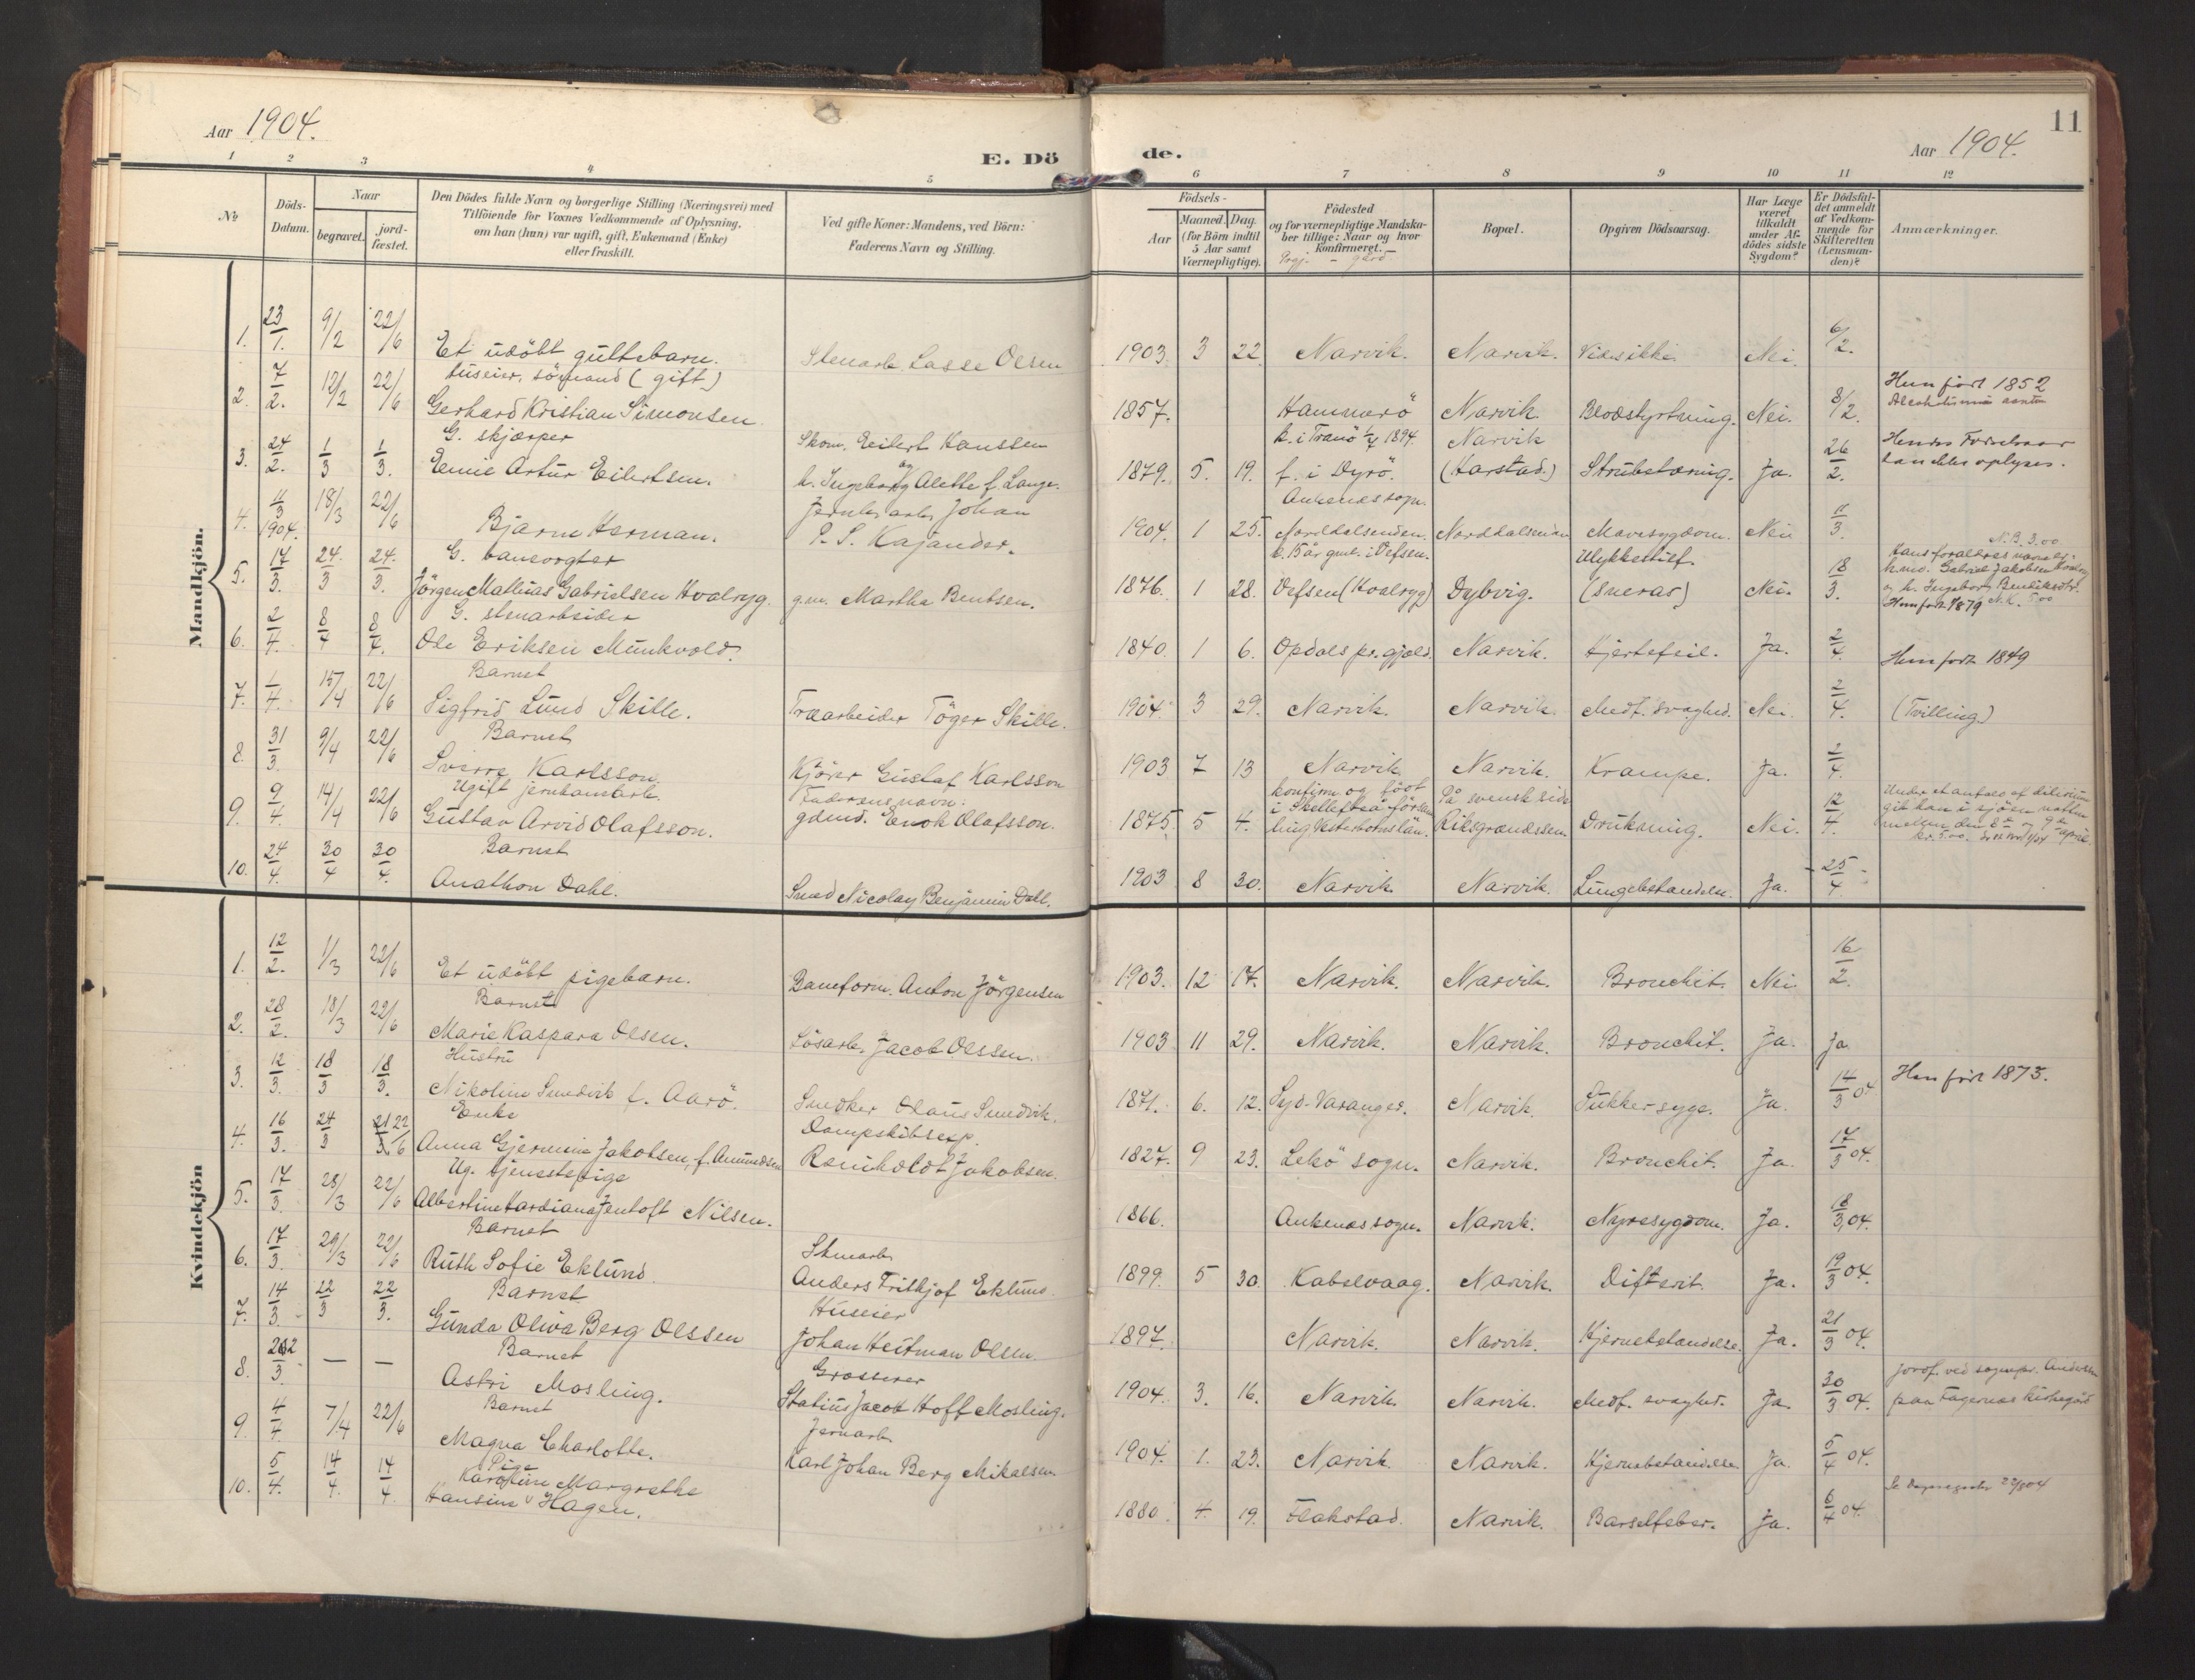 Aar 1904.
E. Dö
de.
Aar 1904.
11
1 2 3 4 5 6 7 8 9 10 11 12
№
Döds-Datum.
Naar
begravet.
jord-fæstet.
Den Dödes fulde Navn og borgerlige Stilling (Næringsvei) med
Tilföiende for Voxnes Vedkommende af Oplysning,
om han (hun) var ugift, gift, Enkemand (Enke)
eller fraskilt.
Ved gifte Koner: Mandens, ved Börn:
Faderens Navn og Stilling.
Födsels-
Aar
Maaned. Dag.
(for Börn indtil
5 Aar samt
Værnepligtige).
Födested
og for værnepligtige Mandska-
ber tillige: Naar og hvor
konfirmeret.
Prgj. - gård.
Bopæl.
Opgiven Dödsaarsag.
Har Læge
været
tilkaldt
under Af-
dödes sidste
Sygdom?
Er Dödsfal-
det anmeldt
af Vedkom-
mende for
Skifteretten
(Lensman-
den)?
Anmærkninger.
Mandkjön.
1. 23/1. 9/2 22/6 Et udöbt guttebarn. Stenarb. Lasse Olsen 1903. 3 22 Narvik. Narvik. Vides ikke. Nei. 6/2.
2. 7/2. 12/2 22/6 Huseier, sömand (gift)
Gerhard Kristian Simonsen. 1857. Hammerö Narvik. Blodstyrtning. Nei. 8/2. Hun födt 1852
3. 24/2. 1/3 1/3. G. skjærper
Ennie Artur Eilertsen. Skom. Eilert Hanssen
og
h. Ingeborg Alette f. Lange. 1879. 5. 19. k. i Tranö 1/7 1894.
f. i Dyrö. Narvik
(Harstad.) Strubetæring. Ja. 26/2. Hendes Fødselsaar
kan ikke oplyses.
4. 4/3 1904. 18/3 22/6 Bjarne Herman. Jernb. arb. Johan
P. S. Kajander. 1904. 1 25. Ankenes sogn.
Norddalsenden. Norddalsenden Mavesygdom. Nei 11/3.
5. 17/3. 24/3 24/3. G. banevogter
Jörgen Mathias Gabrielsen Hvalryg. g.m. Martha Bentsen. 1876. 1 28. k. 15 år gml. i Vefsen.
Vefsen (Hvalryg) Dybvig. Ulykkestilf.
(sneras) Nei. 18/3. N.B. 3.00
Hans forældres navn er:
h.md. Gabriel Jakobsen
og h. Ingeborg Bendiksdtr.
Hun född 1879
6. 2/4. 8/4 8/4. G. stenarbeider
Ole Eriksen Munkvold. 1840. 1 6. Opdals pr.gjeld. Narvik. Hjertefeil. Ja. 2/4. Hun född 1849
7. 1/4. 15/4 22/6 Barnet
Sigfrid Lund Skille. Træarbeider Töger Skille. 1904. 3 29. Narvik. Narvik. Medf. svaghed. Nei. 2/4. (Tvilling)
8. 31/3. 9/4 22/6 Barnet
Sverre Karlsson. Kjörer Gustaf Karlsson 1903 7 13 Narvik Narvik. Krampe. Ja. 2/4.
9. 9/4. 14/4 22/6 Ugift jernbanearb.
Gustav Arvid Olafsson. Faderens navn:
gdmd. Enok Olafsson. 1875. 5 4. konfirm og födt
i Skellefteå försam
ling Vesterbotnslän. På svensk side
Riksgrændsen. Drukning. Nei. 12/4. Under et anfald af delirium
gik han i sjöen natten
mellem den 8de og 9de april.
10. 24/4. 30/4 30/4. Barnet
Anathon Dahl. Smed Nicolay Benjamin Dahl. 1903 8 30. Narvik Narvik. Lungebetændelse. Ja. 25/4
Kvindekjön
1. 12/2. 1/3 22/6 Et udöbt pigebarn. Baneform. Anton Jörgensen 1903. 12 17. Narvik. Narvik. Bronchit. Nei 16/2.
2. 28/2. 18/3 22/6 Barnet
Marie Kaspara Olsen. Lösarb. Jacob Olssen. 1903 11 29. Narvik. Narvik. Bronchit. Ja. Ja
3. 12/3. 18/3 18/3. Hustru
Nikoline Smedvik f. Aarö. Snedker Olaus Smedvik. 1871. 6. 12. Syd-Varanger. Narvik. Sukkersyge. Ja. 14/3 04 Han född 1873.
4. 16/3. 24/3 22/6 Enke
Anna Gjermine Jakobsen, f. Amundsen Dampskibsexp.
Reinholdt Jakobsen. 1827. 9 23. Lekö sogn. Narvik. Bronchit. Ja. 17/3 04.
5. 17/3. 28/3 22/6 Ug. tjenestepige
Albertine Jentoft Nilsen. 1866. Ankenes sogn. Narvik. Nyresygdom. Ja. 18/3 04.
6. 17/3. 29/3 22/6 Barnet
Ruth Sofie Eklund. Stenarb.
Anders Frithjof Eklund. 1899. 5 30. Kabelvaag. Narvik. Difterit. Ja. 19/3 04.
7. 14/3. 22/3 22/3. Barnet
Gunda Oliva Berg Olssen Huseier
Johan Heitman Olsen. 1897. Narvik. Narvik. Hjernebetændelse. Ja. 21/3 04.
8. — — Barnet
Astri Mosling. Grosserer
Statius Jacob Hoff Mosling. 1904. 3. 16. Narvik. Narvik. Medf. svaghed. Ja. 30/3 04. Jordf. ved sognepr.
paa Fagernes Kirkegård
9. 4/4. 7/4 22/6 Barnet
Magna Charlotte. Jernarb.
Karl Johan Berg Mikalsen. 1904. 1. 23. Narvik. Narvik. Hjernebetændelse Ja. 5/4 04.
10. 5/4. 14/4. 14/4 Pige
Karoline Margrethe
Hansine Hagen. 1880. 4. 19. Flakstad. Narvik. Barselfeber. Ja. 6/4 04.